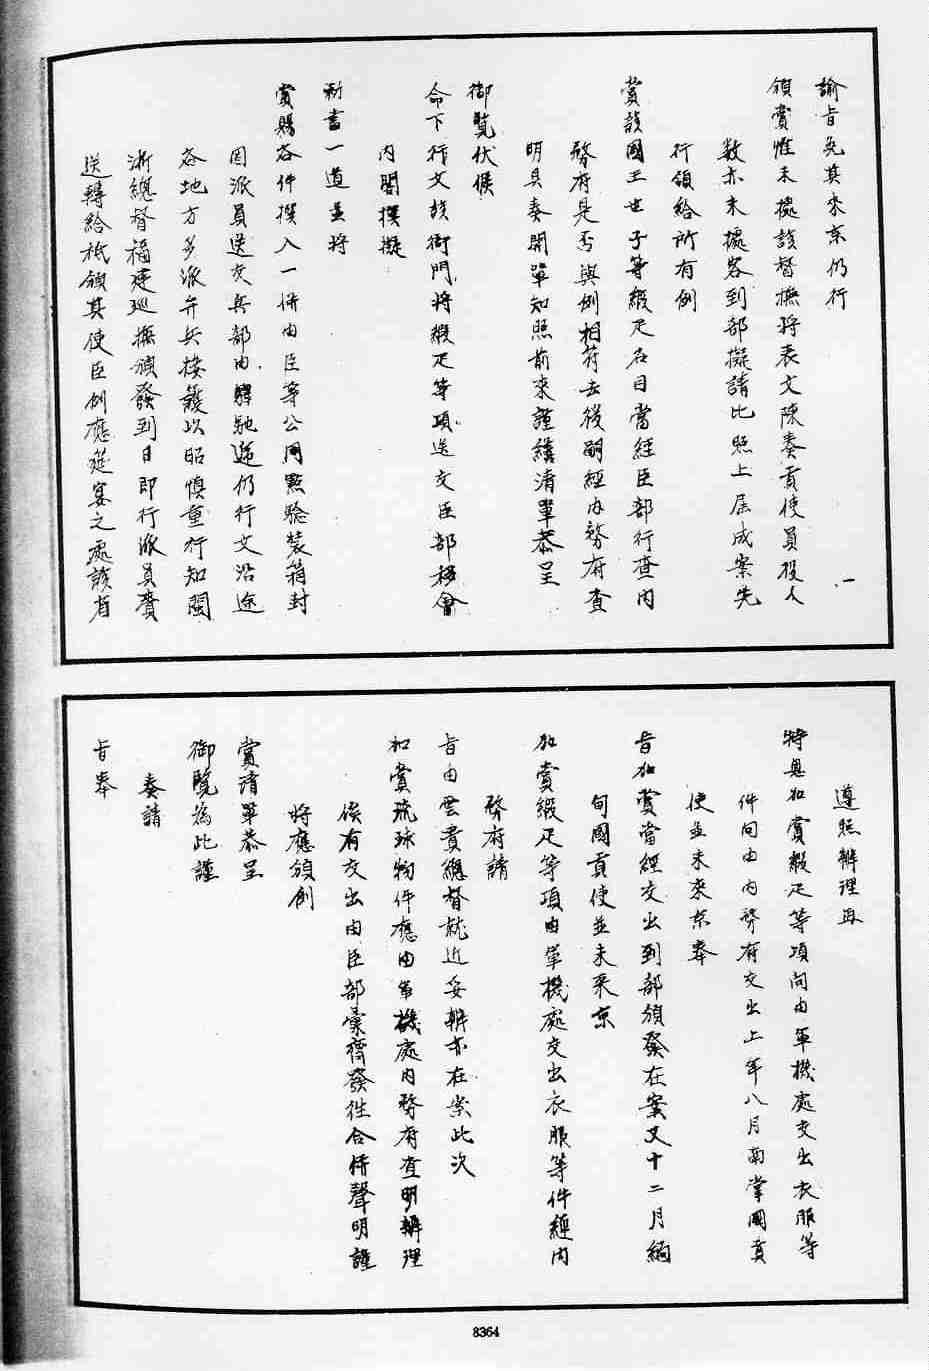 諭旨免其來京仍行
頒賞惟未據該督撫將表文陳奏貢使員役人
數亦未據咨到部擬請比照上届成案先
行頒給所有例
賞該國王世子等緞疋名目當經臣部行查内
務府是否與例相符去後嗣經内務府查
明具奏開單知照前來謹繕清單恭呈
御覽伏候
命下行文該衙門將緞疋等項送交臣部移會
内閣撰擬
勅書一道並將
賞賜各件撰入一併由臣等公同點驗裝箱封
固派員送交兵部由驛馳遞仍行文沿途
各地方多派弁兵接護以昭慎重行知閩
浙總督福建巡撫頒發到日即行派員賫
送轉給祗領其使臣例應筵宴之處該省
遵照辦理再
特恩加賞緞疋等項向由軍機處交出衣服等
件向由内務府交出上年八月南掌國貢
使並未來京奉
旨加賞當經交出到部頒發在案又十二月緬
甸國貢使並未來京
加賞緞疋等項由軍機處交出衣服等件經内
務府請
旨由雲貴總督就近妥辦亦在案此次
加賞琉球物件應由軍機處内務府查明辦理
俟有交出由臣部彙齊發往合併聲明謹
將應頒例
賞清單恭呈
御覽為此謹
奏請
旨奉
8364